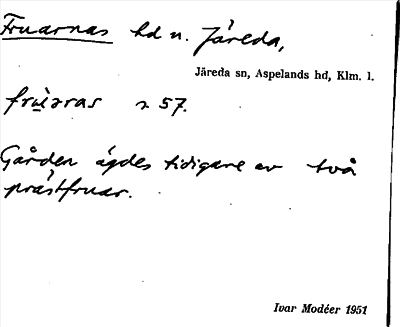 Fruarnas hd n. Järeda,
Järeda sn, Aspelands hd, Klm. l.
frùəras s. 57.
Gården ägdes tidigare av två
prästfruar.
Ivar Modéer 1951